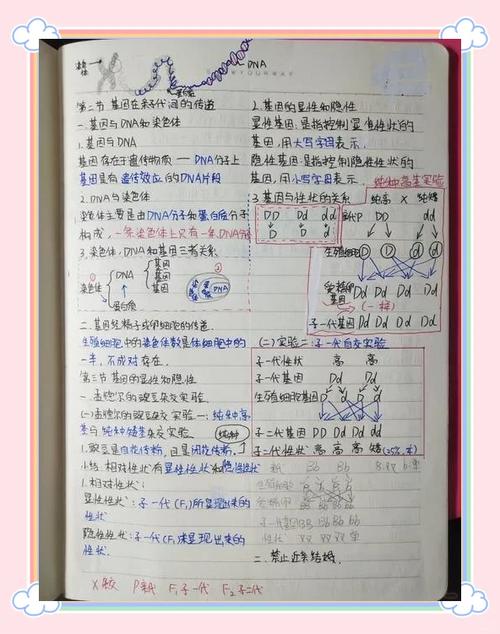 染色体
DNA
蛋白质
第二节 基因在亲子代间的传递
一.基因与DNA和染色体
1.基因与DNA
基因存在于遗传物质——DNA分子上
基因是有遗传效应的DNA片段
2.DNA与染色体
染色体主要是由DNA分子和蛋白质分子
构成,一条染色体上只有一条DNA分子
3.染色体,DNA和基因三者关系
染色体 DNA 基因
基因
基因
蛋白质
DNA
二.基因经精子或卵细胞的传递
生殖细胞中的染色体数是体细胞中的
一半,不成对存在.
第三节 基因的显性和隐性
一.孟德尔的豌豆杂交实验
(一)孟德尔的豌豆杂交实验一:纯种高
茎与纯种矮茎杂交实验
纯种
1.豌豆是自花传粉,且是闭花传粉.
小结:相对性状有显性性状和隐性性状
1.相对性状:
显性性状:子一代(F₁)所显现出来的
性状
隐性性状:子一代(F₁)未显现出来的
性状.
X杂交 P亲代 F₁子一代 F₂子二代
2.基因的显性和隐性
显性基因:是指控制显性性状的
基因,用大写字母表示.
隐性基因:是指控制隐性性状的
基因,用小写字母表示.
3.基因与性状的关系
纯种高茎实验
DD Dd dd
D D d
纯高 X 纯矮
DD dd
生殖细胞 D D d d
受精卵基因 Dd Dd Dd Dd
(一样)
子一代基因 Dd Dd Dd Dd
(二)实验二:子一代自交实验
子一代性状 高 高
子一代基因 Dd Dd
生殖细胞基因 D d D d
子二代基因 DD Dd Dd dd
子二代性状 高 高 高 矮(25%,矮)
Bb Bb
二.禁止近亲结婚.